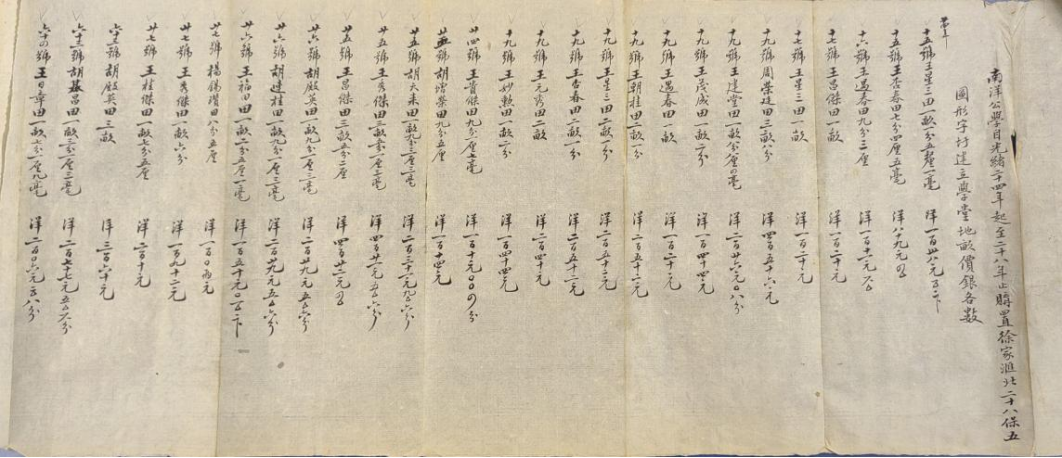 南洋公學自光緒二十四年起至二十八年止購置徐家滙北二十八保五
圖形字圩建立學堂地畝價銀各數
十五號王星三田一畝一分五釐一毫 洋一百廿八元
十五號王杏春田七分四厘五毫 洋八十九元
十六號王遇春田九分三厘 洋一百十一元
十七號王昌傑田一畝 洋一百二十元
十七號王星三田一畝 洋一百二十元
十九號周榮建田三畝八分 洋四百五十六元
十九號王建堂田一畝 洋二百
十九號王茂成田一畝二分 洋一百四十四元
十九號王遇春田一畝 洋一百二十元
十九號王朝桂田二畝一分 洋二百五十二元
十九號王星三田二畝一分 洋二百五十二元
十九號王杏春田二畝一分 洋二百五十二元
十九號王元秀田二畝 洋二百四十元
十九號王妙歎田一畝二分 洋一百四十四元
廿四號王貴傑田九分二厘七毫 洋一百十
廿五號胡增榮田九分五厘 洋一百十四元
廿五號胡大來田一畝九分三厘三毫 洋二百三十一元九角六分
廿五號王秀傑田三畝 洋四百廿一元五角六分
廿五號王昌傑田三畝五分二厘 洋四百廿二元
廿六號胡殿英田一畝九分一厘三毫 洋二百廿九元五角六分
廿六號胡建桂田一畝九分一厘三毫 洋二百廿九元五角六分
廿六號王福田田一畝二分五厘一毫 洋一百五十元
廿七號楊錫瓚田八分五厘 洋一百〇兩元
廿七號王秀傑田一畝六分 洋一百九十二元
廿七號王桂傑田一畝七分五厘 洋二百十元
六十三號胡殿英田三畝 洋三百六十元
六十三號胡 昌田一畝三分一厘三毫 洋二百七十七元五角六分
六十四號王日章田一畝七分一厘九毫 洋二百〇六元二角八分